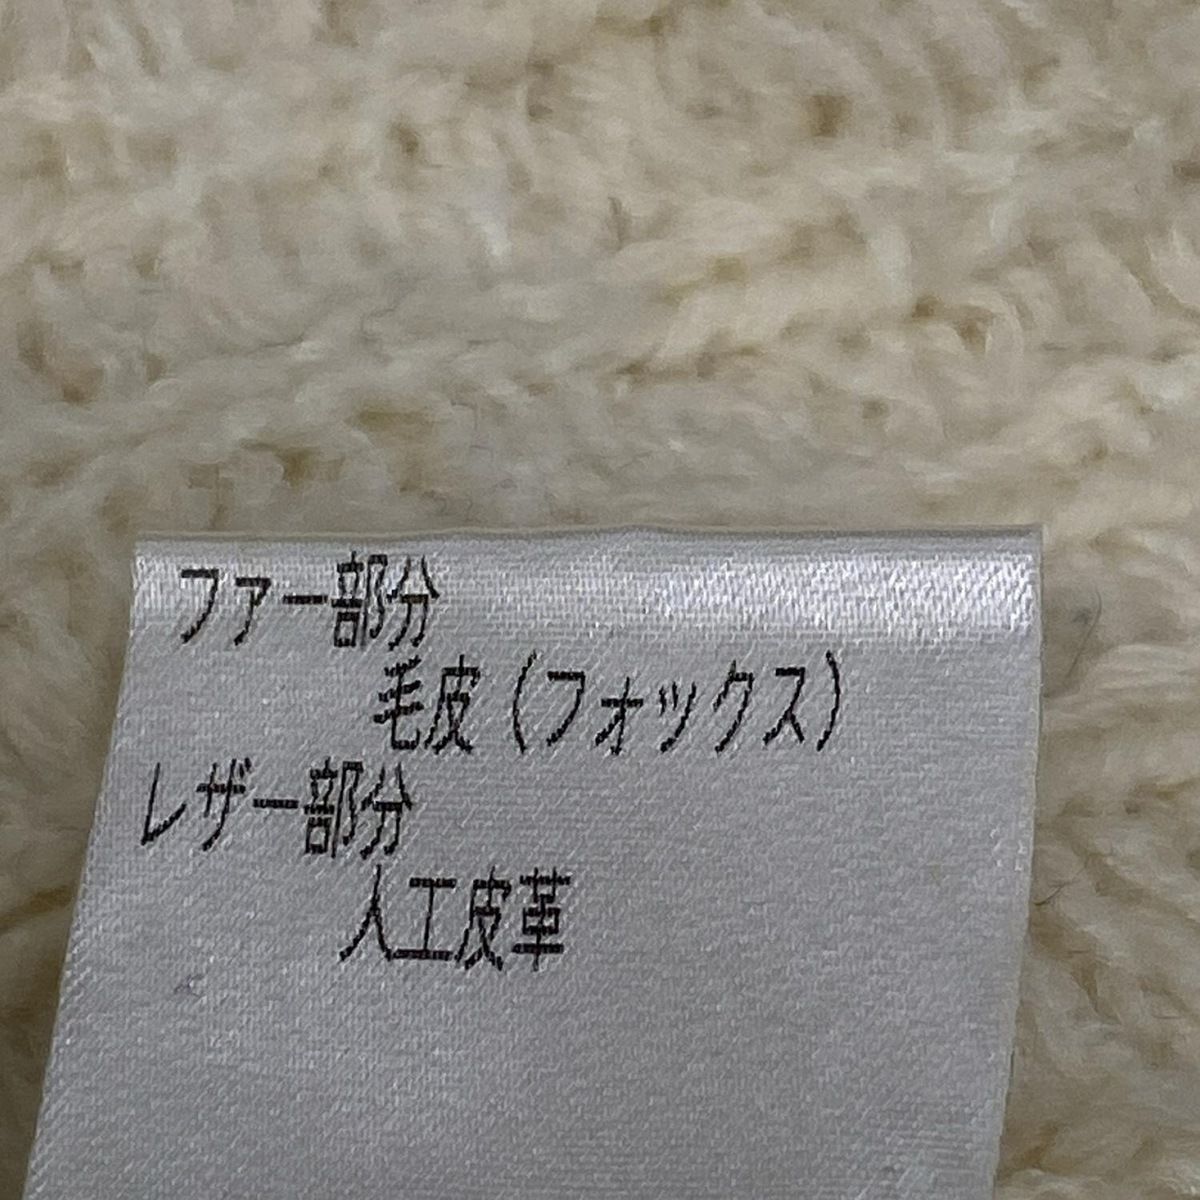 ファー部分
毛皮(フォックス)
レザー部分
人工皮革